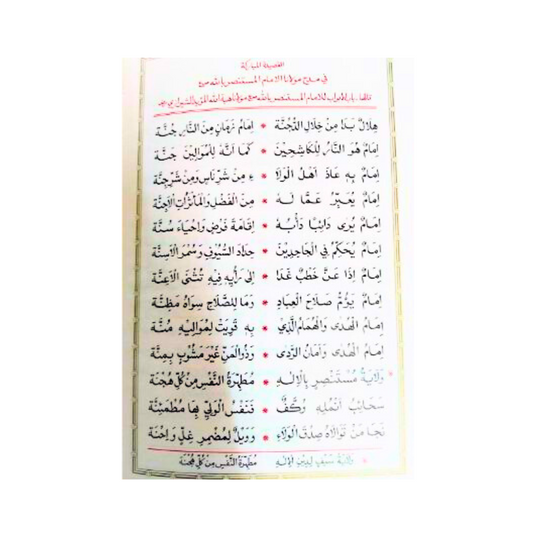 القصيدة المباركة
في مدح مولانا الامام المستنصر بالله
هِلَالٌ بَدَا مِنْ خِلَالِ الدُّجُنَّة * اِمَامُ زَمَانٍ مِنَ النَّارِ جُنَّة
اِمَامٌ هُوَ النَّارُ لِلْكَاشِحِيْنَ * كَمَا اَنَّهُ لِلْمُوَالِيْنَ جَنَّة
اِمَامٌ بِهِ عَاذَ اَهْلُ الْوَلَا * ءِ مِنْ شَرِّ نَاسٍ وَمِنْ شَرِّ جِنَّة
اِمَامٌ يُعَبِّرُ عَمَّا لَهُ * مِنَ الْفَضْلِ وَالْمَأْثُرَاتِ الْاَجِنَّة
اِمَامٌ يُرَى دَائِبًا دَأْبُهُ * اِقَامَةَ فَرْضٍ وَاِحْيَاءَ سُنَّة
اِمَامٌ يُحَكِّمُ فِي الْجَاحِدِيْنَ * حِدَادَ السُّيُوْفِ وَسُمْرَ الْاَسِنَّة
اِمَامٌ اِذَا عَنَّ خَطْبٌ غَدَا * اِلَى رَأْيِهِ فِيْهِ تُثْنَى الْاَعِنَّة
اِمَامٌ يَؤُمُّ صَلَاحَ الْعِبَادِ * وَمَا لِلصَّلَاحِ سِوَاهُ مَظِنَّة
اِمَامُ الْهُدَى وَالْهُمَامُ الَّذِيْ * بِهِ قَوِيَتْ لِمُوَالِيْهِ مُنَّة
اِمَامُ الْهُدَى وَاَمَانُ الرَّدَى * وَذُو الْمَنِّ غَيْرَ مَشُوْبٍ بِمِنَّة
وَلَايَةُ مُسْتَنْصِرٍ بِالْاِلٰهِ * مُطَهِّرَةُ النَّفْسِ مِنْ كُلِّ هُجْنَة
سَحَائِبُ اَنْمُلِهِ وُكَّفٌ * فَنَفْسُ الْوَلِيِّ بِهَا مُطْمَئِنَّة
نَجَا مَنْ تَوَالَاهُ صِدْقَ الْوَلَاءِ * وَوَيْلٌ لِمُضْمِرِ غِلٍّ وَاِحْنَة
* وَلَايَةُ سَيْفٍ لِدِيْنِ الْاِلٰهِ مُطَهِّرَةُ النَّفْسِ مِنْ كُلِّ هُجْنَة